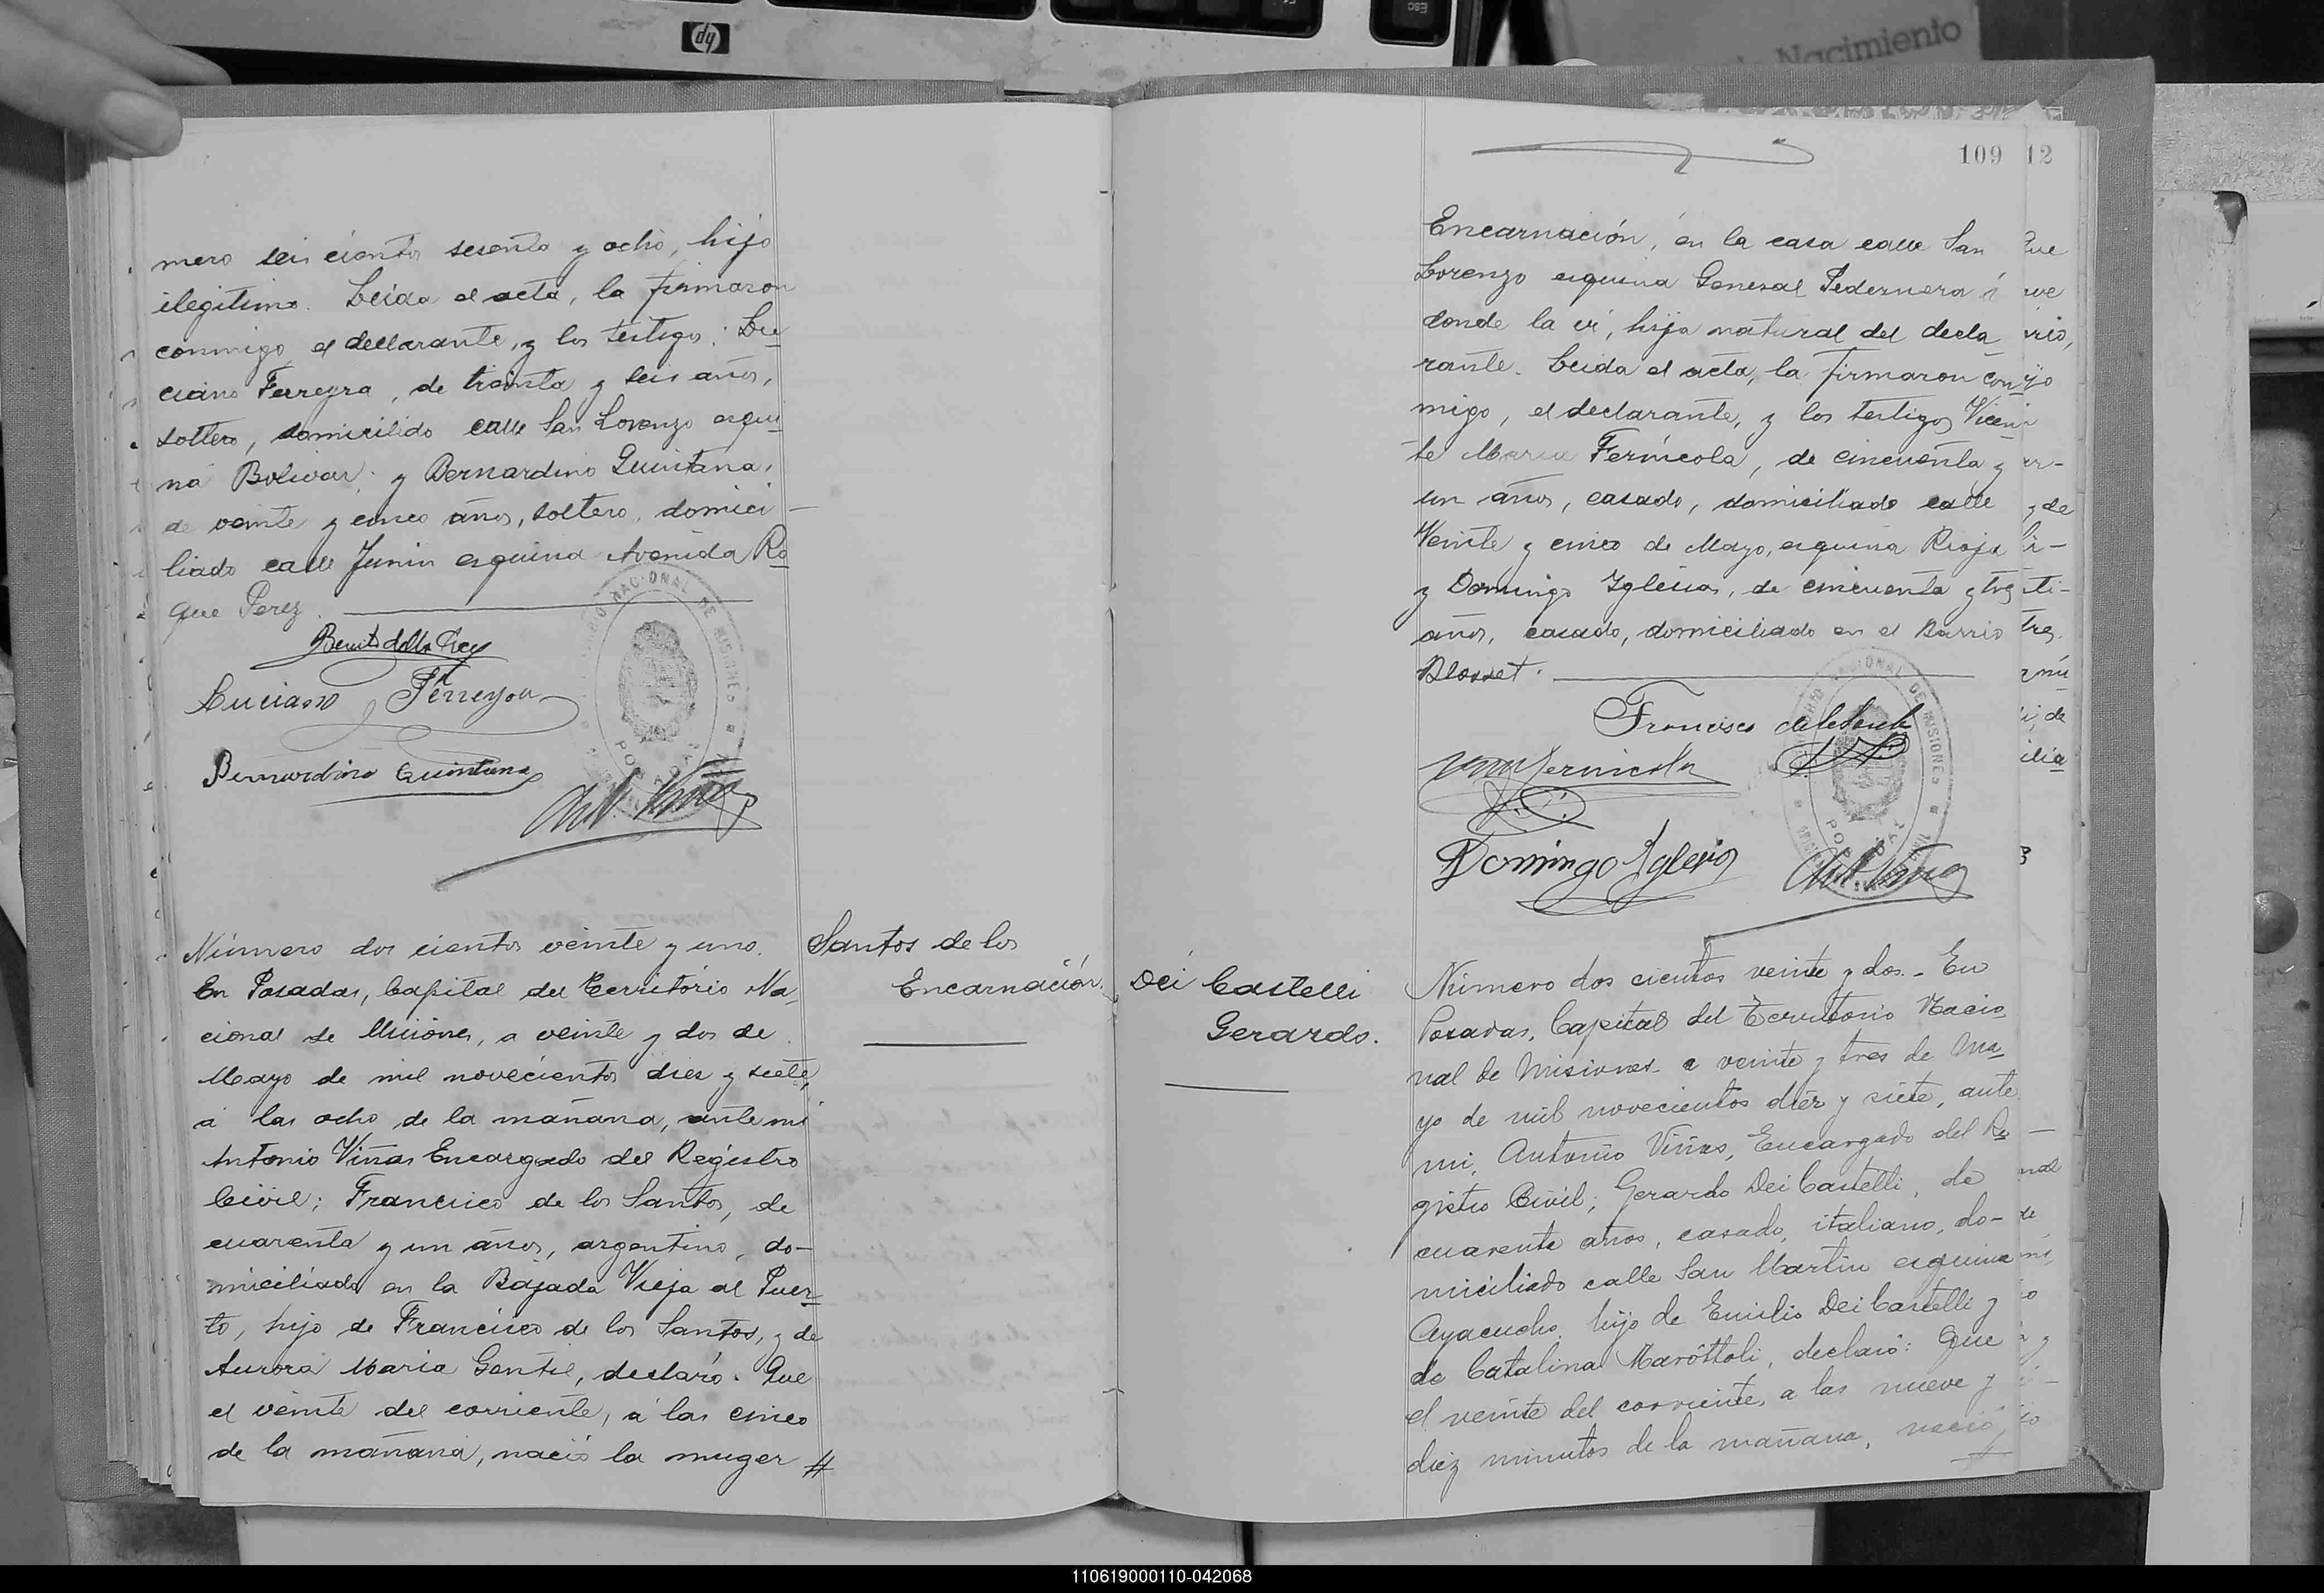 hp
ESC
Nacimiento
mero seis cientos sesenta y ocho, hijo
ilegitimo. Leida el acta, la firmaron
conmigo, el declarante, y los testigos: Lu
ciano Ferreyra, de treinta y seis años,
soltero, domicilido calle San Lorenzo esqui
na Bolivar; y Bernardino Quintana,
de veinte y cinco años, soltero, domici-
liado calle Junin esquina Avenida Ro
que Perez.
Luciano Ferreyra
Bernardino Quintana
Número dos cientos veinte y uno.
En Posadas, Capital del Territorio Na
cional de Misiones, a veinte y dos de
Mayo de mil novecientos diez y siete,
a las ocho de la mañana, ante mi
Antonio Viñas Encargado del Registro
Civil; Francisco de los Santos, de
cuarenta y un años, argentino, do-
miciliado en la Bajada Vieja al Puer
to, hijo de Francisco de los Santos, y de
Aurora Maria Gentil, declaró: Que
el veinte del corriente, a las cinco
de la mañana, nació la muger #
Santos de los
Encarnación.
109
12
Encarnación, en la casa calle San
Lorenzo esquina General Pedernera á
donde la vi, hija natural del decla
rante. Leida el acta, la firmaron con
migo, el declarante, y los testigos Vicen
te Maria Fernícola, de cincuenta y
un años, casado, domiciliado calle
Veinte y cinco de Mayo, esquina Rioja
y Domingo Iglesias, de cincuenta y tres
años, casado, domiciliado en el Barrio
Blosset.
Francisco de los Santos
VM Fernicola
Domingo Iglesias
REGISTRO NACIONAL DE MISIONES
POSADAS
Dei Castelli
Gerardo.
Número dos cientos veinte y dos.- En
Posadas, Capital del Territorio Nacio
nal de Misiones a veinte y tres de Ma
yo de mil novecientos diez y siete, ante
mi, Antonio Viñas, Encargado del Re
gistro Civil; Gerardo Dei Castelli, de
cuarente años, casado, italiano, do-
miciliado calle San Martin esquina
Ayacucho, hijo de Emilio Dei Castelli y
de Catalina Maróttoli, declaró: Que
el veinte del corriente, a las nueve y
diez minutos de la mañana, nació
110619000110-042068